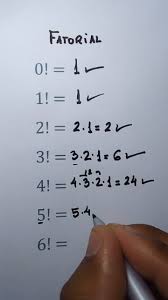 FATORIAL
0! = 1 ✓
1! = 1 ✓
2! = 2·1 = 2 ✓
3! = 3·2·1 = 6 ✓
12
4! = 4·3·2·1 = 24 ✓
5! = 5·4
6! =